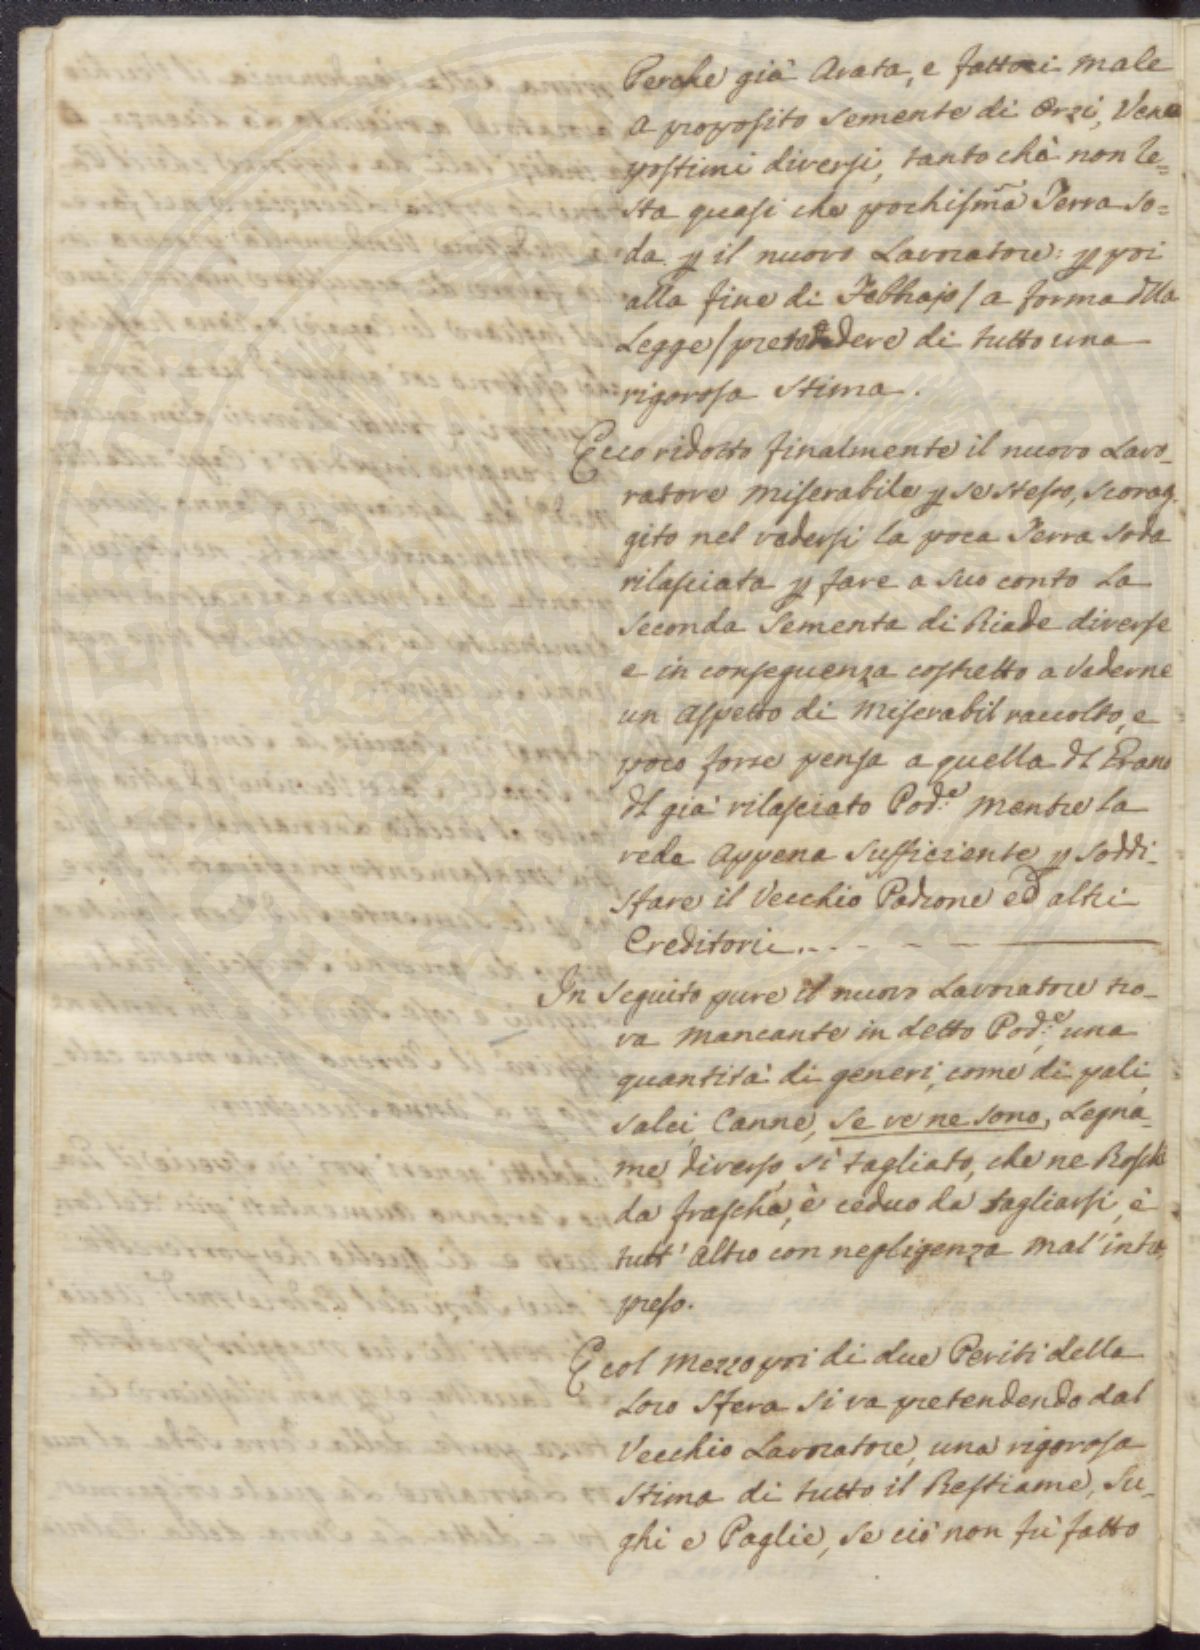 Perche già Arata, e fattovi male
a proposito semente di Orzi, Vena
postimi diversi, tanto chè non re=
sta quasi che pochissma Terra so=
da p il nuovo Lavoratore: p poi
alla fine di Febbrajo / a forma dlla
Legge / pretendere di tutto una
rigorosa Stima.
Ecco ridotto finalmente il nuovo Lavo-
ratore miserabile p se stesso, scorag-
gito nel vedersi la poca Terra soda
rilasciata p fare a suo conto la
seconda Sementa di Biade diverse
e in conseguenza costretto a vederne
un aspetto di miserabil raccolto, e
poco forse pensa a quella dl Grano
dl già rilasciato Pod.e mentre la
vede appena sufficiente p soddi-
sfare il Vecchio Padrone ed altri
Creditori...
In seguito pure il nuovo Lavoratore tro-
va mancante in detto Pod.e una
quantità di generi, come di pali,
salci, Canne, se ve ne sono, Legna-
me diverso, sì tagliato, che ne Boschi
da frascha, è ceduo da tagliarsi, è
tutt' altro con negligenza mal' inta-
preso.
E col mezzo poi di due Periti della
Loro Sfera si va pretendendo dal
Vecchio Lavoratore, una rigorosa
Stima di tutto il Bestiame, Su-
ghi e Paglie, se ciò non fù fatto